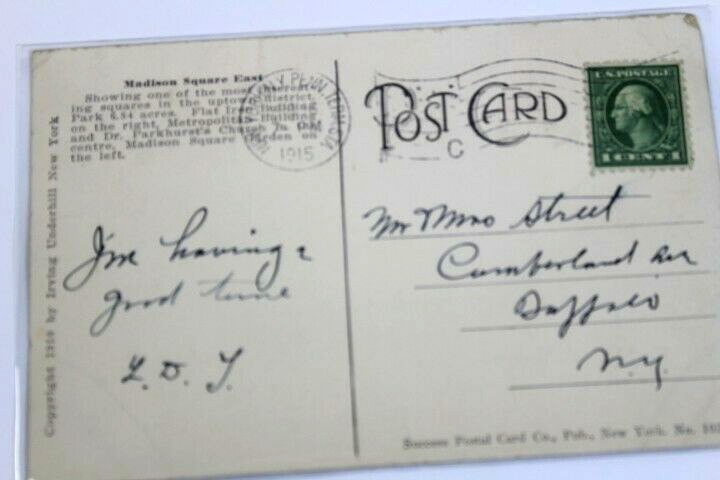 Madison Square East
Showing one of the most interest-
ing squares in the uptown district.
Park 6.84 acres. Flat Iron Building
on the right, Metropolitan Building
and Dr. Parkhurst's Church in the
centre, Madison Square Garden on
the left.
Copyright 1910 by Irving Underhill New York
PENN. TERM. STA.
1915
C
POST CARD
U.S. POSTAGE
1 CENT 1
I'm having a
good time
L. D. T.
Mr & Mrs Street
Cumberland Ave
Buffalo
N.Y.
Success Postal Card Co., Pub., New York, No.